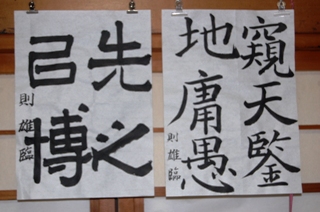 窺天鑒
地庸愚
則雄臨
先之
㠯博
則雄臨